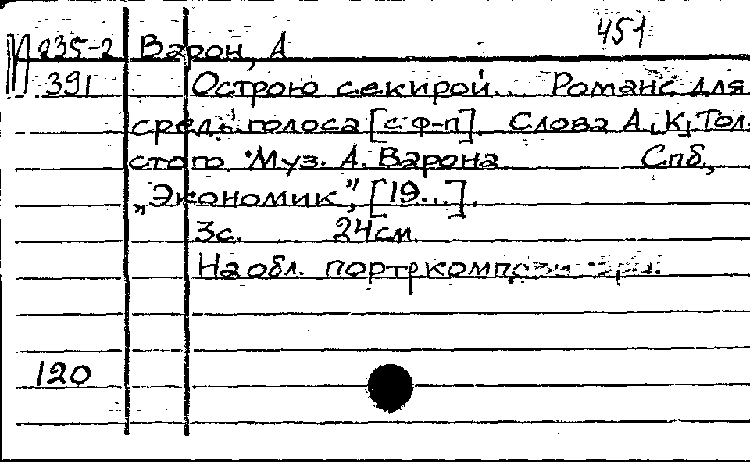 451
М 235-2 Варон, А
391 Острою секирой... Романс для
средн. голоса [с ф-п]. Слова А.К.Тол-
стого Муз. А. Варона Спб.,
„Экономик”, [19...].
3с. 24см
На обл. портр композитора.
120